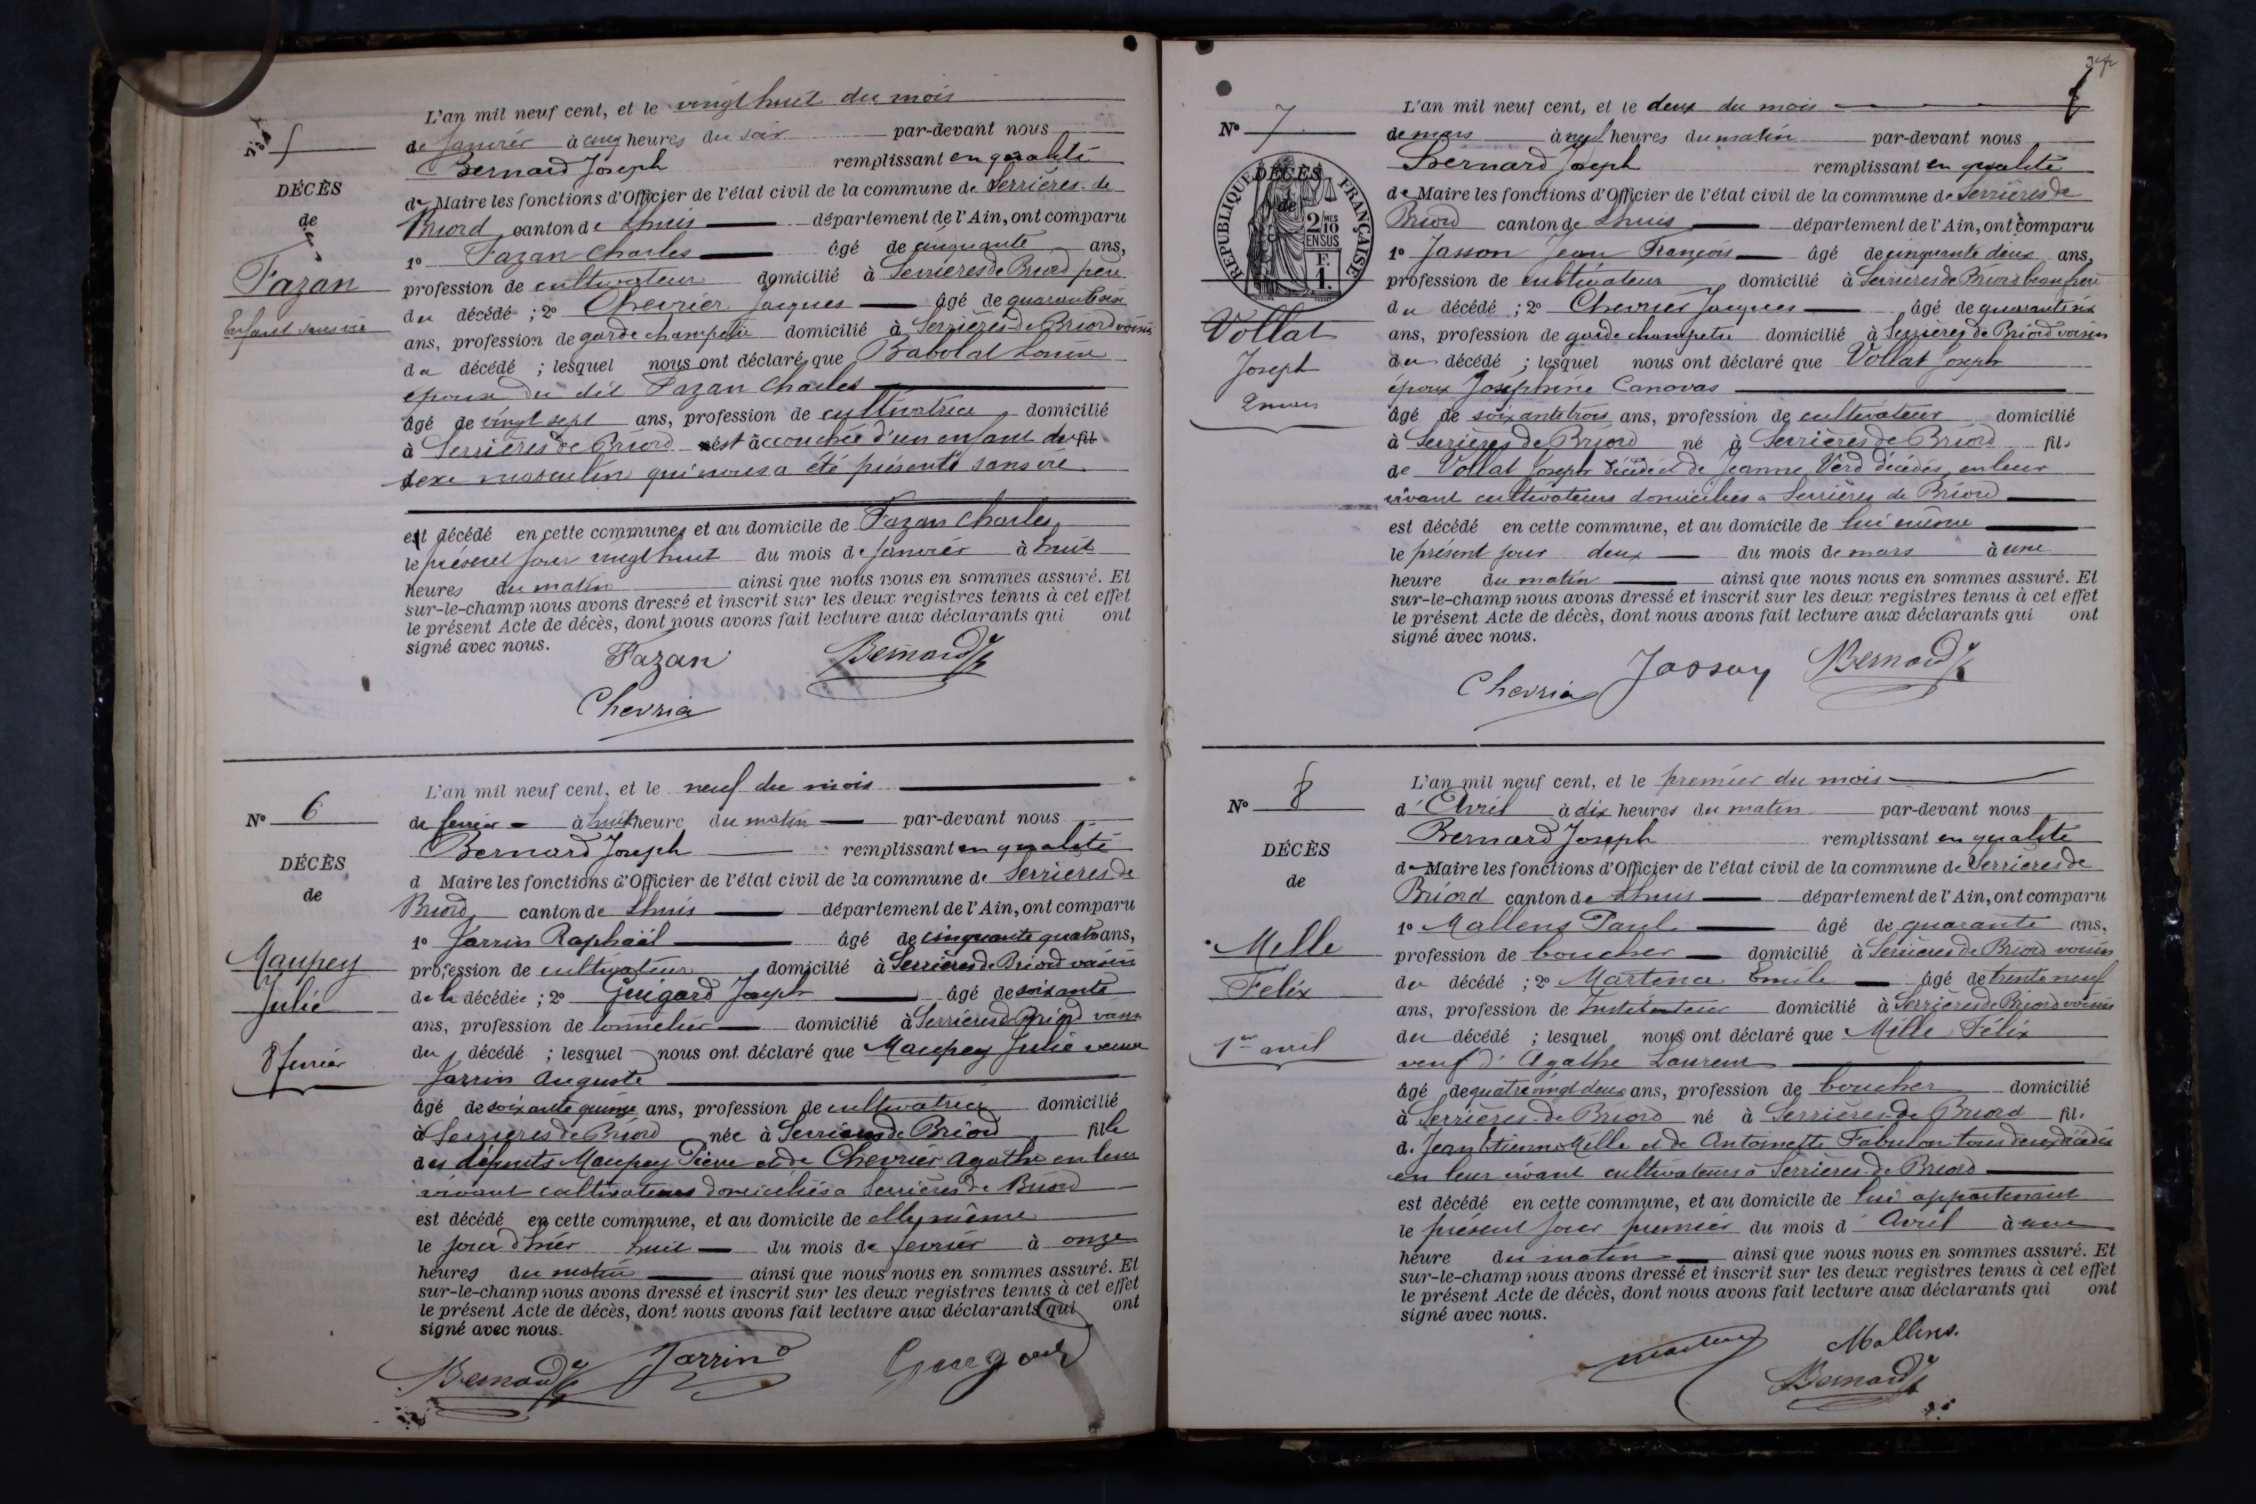 N° 5
DÉCÈS
de
Fazan
Enfant sans vie
L'an mil neuf cent, et le vingt huit du mois
de janvier à cinq heures du soir par-devant nous
Bernard Joseph remplissant en qualité
de Maire les fonctions d'Officier de l'état civil de la commune de Serrières de
Briord canton de Lhuis département de l'Ain, ont comparu
1° Fazan Charles âgé de cinquante ans,
profession de cultivateur domicilié à Serrières de Briord père
du décédé ; 2° Chevrier Jacques âgé de quarante six
ans, profession de garde champetre domicilié à Serrières de Briord voisin
du décédé ; lesquel nous ont déclaré que Babolat Louise
épouse du dit Fazan Charles
âgé de vingt sept ans, profession de cultivatrice domicilié
à Serrières de Briord est accouchée d'un enfant du
sexe masculin qui nous a été présenté sans vie
est décédé en cette commune, et au domicile de Fazan Charles
le présent jour vingt huit du mois de janvier à huit
heures du matin ainsi que nous nous en sommes assuré. Et
sur-le-champ nous avons dressé et inscrit sur les deux registres tenus à cet effet
le présent Acte de décès, dont nous avons fait lecture aux déclarants qui ont
signé avec nous.
Fazan Bernard J
Chevrier
N° 6
DÉCÈS
de
Maupey
Julie
8 fevrier
L'an mil neuf cent, et le neuf du mois
de fevrier à huit heure du matin par-devant nous
Bernard Joseph remplissant en qualité
d Maire les fonctions d'Officier de l'état civil de la commune de Serrières de
Briord canton de Lhuis département de l'Ain, ont comparu
1° Jarrin Raphaël âgé de cinquante quatre ans,
profession de cultivateur domicilié à Serrières de Briord voisin
de la décédée ; 2° Guigard Joseph âgé de soixante
ans, profession de tonnelier domicilié à Serrières de Briord voisin
du décédé ; lesquel nous ont déclaré que Maupey Julie veuve
Jarrin Auguste
âgé de soixante quinze ans, profession de cultivatrice domicilié
à Serrières de Briord née à Serrières de Briord fille
des défunts Maupey Pierre et de Chevrier Agathe en leur
vivant cultivateurs domiciliés à Serrières de Briord
est décédé en cette commune, et au domicile de elle même
le jour d'hier huit du mois de fevrier à onze
heures du matin ainsi que nous nous en sommes assuré. Et
sur-le-champ nous avons dressé et inscrit sur les deux registres tenus à cet effet
le présent Acte de décès, dont nous avons fait lecture aux déclarants qui ont
signé avec nous.
Bernard J Jarrin Guigard
N° 7
RÉPUBLIQUE FRANÇAISE
DÉCÈS
de
2/10 EN SUS
F. 1.
Vollat
Joseph
2 mars
L'an mil neuf cent, et le deux du mois
de mars à neuf heures du matin par-devant nous
Bernard Joseph remplissant en qualité
de Maire les fonctions d'Officier de l'état civil de la commune de Serrières de
Briord canton de Lhuis département de l'Ain, ont comparu
1° Jasson Jean François âgé de cinquante deux ans,
profession de cultivateur domicilié à Serrières de Briord beau frère
du décédé ; 2° Chevrier Jacques âgé de quarante six
ans, profession de garde champetre domicilié à Serrières de Briord voisin
du décédé ; lesquel nous ont déclaré que Vollat Joseph
époux Josephine Canovas
âgé de soixante trois ans, profession de cultivateur domicilié
à Serrières de Briord né à Serrières de Briord fils
de Vollat Joseph décédé et de Jeanne Verd décédés en leur
vivant cultivateurs domiciliés à Serrières de Briord
est décédé en cette commune, et au domicile de lui même
le présent jour deux du mois de mars à une
heure du matin ainsi que nous nous en sommes assuré. Et
sur-le-champ nous avons dressé et inscrit sur les deux registres tenus à cet effet
le présent Acte de décès, dont nous avons fait lecture aux déclarants qui ont
signé avec nous.
Chevrier Jasson Bernard J
N° 8
DÉCÈS
de
Mille
Felix
1er avril
L'an mil neuf cent, et le premier du mois
d'Avril à dix heures du matin par-devant nous
Bernard Joseph remplissant en qualité
de Maire les fonctions d'Officier de l'état civil de la commune de Serrières de
Briord canton de Lhuis département de l'Ain, ont comparu
1° Mallens Paul âgé de quarante ans,
profession de boucher domicilié à Serrières de Briord voisin
du décédé ; 2° Martena Emile âgé de trente neuf
ans, profession de Instituteur domicilié à Serrières de Briord voisin
du décédé ; lesquel nous ont déclaré que Mille Félix
veuf d'Agathe Laurent
âgé de quatre vingt deux ans, profession de boucher domicilié
à Serrières de Briord né à Serrières de Briord fils
de Jean Etienne Mille et de Antoinette Fabulon tous deux décédés
en leur vivant cultivateurs à Serrières de Briord
est décédé en cette commune, et au domicile de lui appartenant
le présent jour premier du mois d'Avril à une
heure du matin ainsi que nous nous en sommes assuré. Et
sur-le-champ nous avons dressé et inscrit sur les deux registres tenus à cet effet
le présent Acte de décès, dont nous avons fait lecture aux déclarants qui ont
signé avec nous.
Mallens
Bernard J